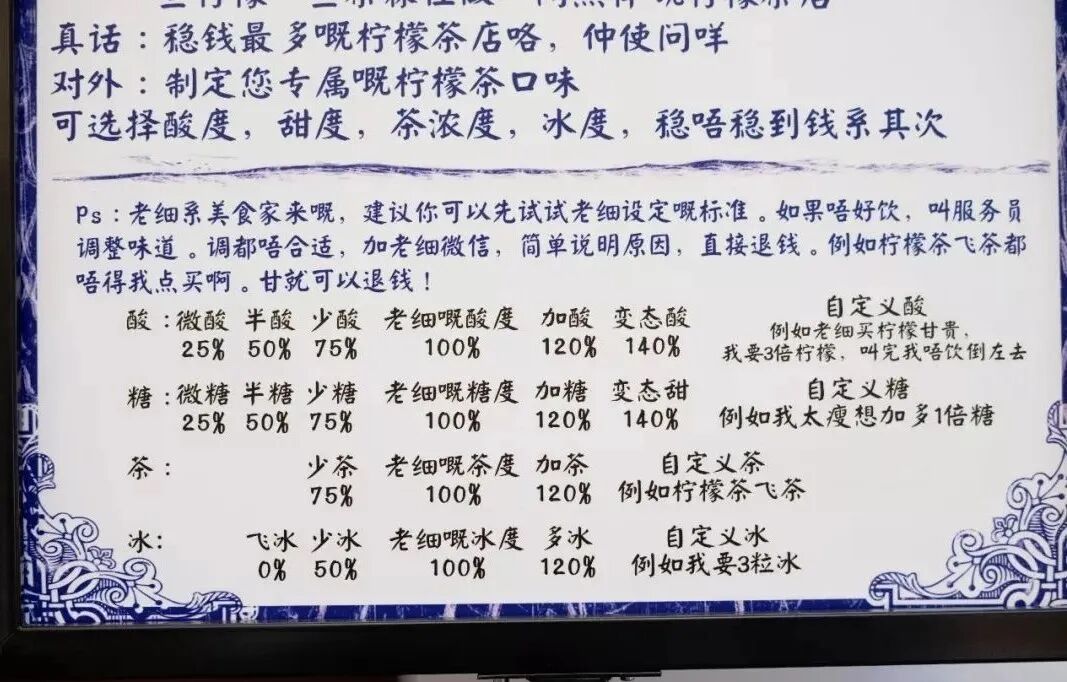 真话：稳钱最多嘅柠檬茶店咯，仲使问咩
对外：制定您专属嘅柠檬茶口味
可选择酸度，甜度，茶浓度，冰度，稳唔稳到钱系其次
Ps：老细系美食家来嘅，建议你可以先试试老细设定嘅标准。如果唔好饮，叫服务员
调整味道。调都唔合适，加老细微信，简单说明原因，直接退钱。例如柠檬茶飞茶都
唔得我点买啊。甘就可以退钱！
酸：微酸 半酸 少酸 老细嘅酸度 加酸 变态酸 自定义酸
25% 50% 75% 100% 120% 140% 例如老细买柠檬甘贵，
我要3倍柠檬，叫完我唔饮倒左去
糖：微糖 半糖 少糖 老细嘅糖度 加糖 变态甜 自定义糖
25% 50% 75% 100% 120% 140% 例如我太瘦想加多1倍糖
茶： 少茶 老细嘅茶度 加茶 自定义茶
75% 100% 120% 例如柠檬茶飞茶
冰： 飞冰 少冰 老细嘅冰度 多冰 自定义冰
0% 50% 100% 120% 例如我要3粒冰